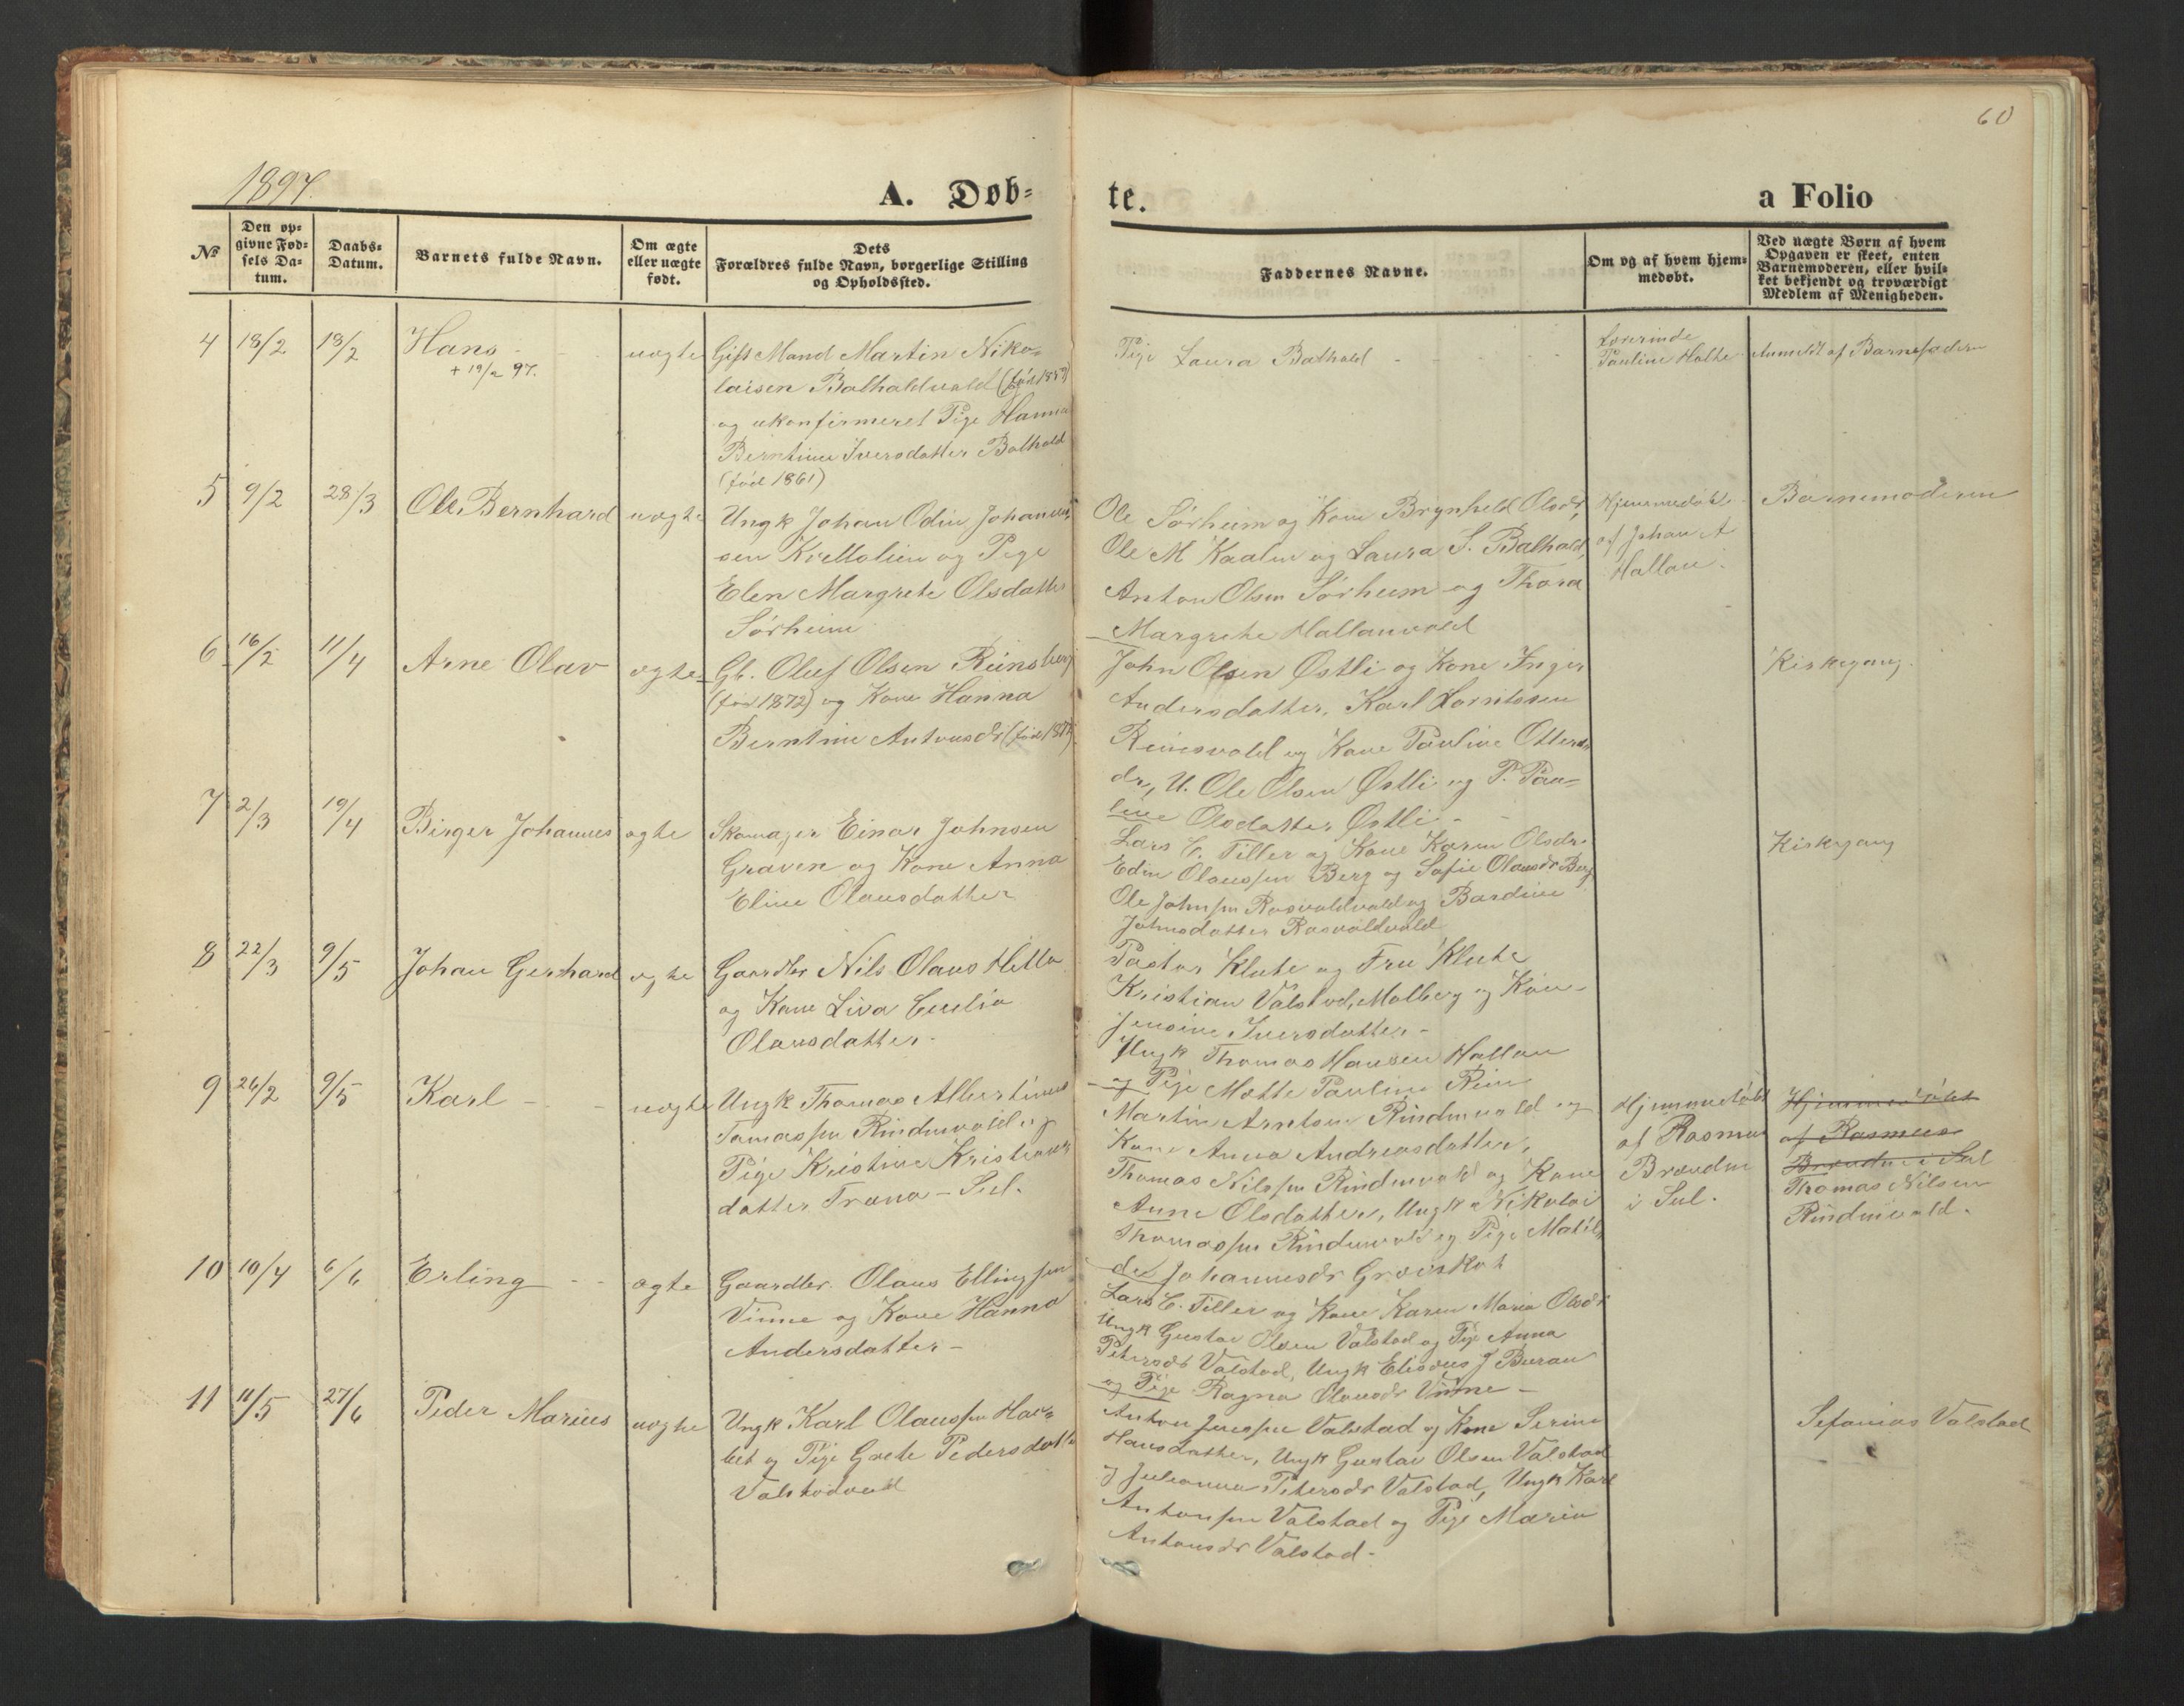 60
1897.
A. Døb=
te.
a Folio
No
Den op=
givne Fød=
sels Da=
tum.
Daabs=
Datum.
Barnets fulde Navn.
Om ægte
eller uægte
født.
Dets
Forældres fulde Navn, borgerlige Stilling
og Opholdssted.
Faddernes Navne.
Om og af hvem hjem=
medøbt.
Ved uægte Børn af hvem
Opgaven er skeet, enten
Barnemoderen, eller hvil=
ket bekjendt og troværdigt
Medlem af Menigheden.
4 18/2 18/2 Hans uægte
+ 19/2 97.
Gift Mand Martin Niko=
laisen Balhaldvald
og ukonfirmeret Pige Hanna
Berntine Iversdatter Balhald
(född 1861)
Pige Laura Balhald
Lærerinde
Pauline Holte
Anmeldt af Barnefaderen
5 9/2 28/3 Ole Bernhard uægte
Ungk Johan Odin Johannes
sen Kvellolien og Pige
Elen Margrete Olsdatter
Sørheim
Ole Sørheim og Kone Brynhild Olsdr,
Ole M Kaalen og Laura S. Balhald,
Anton Olsen Sørheim og Thora
Margrete Hallanvald
Hjemmedøbt
af Johan A
Hallan.
Barnemoderen
6 16/2 11/4 Arne Olav ægte
Gb. Oluf Olsen Reinsberg
(fød 1872) og Kone Hanna
Berntine Antonsdr
John Olsen Østli og Kone Inger
Andersdatter, Karl Lorntsen
Reinsvald og Kone Pauline Otters
dr, U. Ole Olsen Østli og P. Pau=
line Olsdatter Østli -
Kirkegang.
7 2/3 19/4 Birger Johannes ægte
Skomager Einar Johnsen
Graven og Kone Anna
Eline Olausdatter
Lars C. Tiller og Kone Karen Olsdr.
Edin Olaussen Berg og Sofie Olausdr Berg
Ole Johnsen Rosvoldvald og Bardine
Johnsdatter Rosvoldvald
Kirkegang
8 22/3 9/5 Johan Gerhard ægte
Gaardbr Nils Olaus Hello
og Kone Liva Cecilia
Olausdatter.
Pastor Klüte og Fru Klüte
Kristian Valstad, Molberg og Kone
Jensine Iversdatter -
Ungk Thomas Hansen Hallan
og Pige Mette Pauline Rein
9 26/2 9/5 Karl - - uægte
Ungk Thomas Albertinus
Tomassen Rindenvald og
Pige Kristine Kristians
datter Trana - Sul.
Martin Arntsen Rindenvald og
Kone Anna Andreasdatter,
Thomas Nilssen Rindenvald og Kone
Anne Olsdatter, Ungk Nikolai
Thomassen Rindenvald og Pige Matil
de Johannesdr Grøiskot
Hjemmedøbt
af Rasmus
Brænden
i Sul.
Hjemmedøbt
af Rasmus
Brænden i Sul
Thomas Nilsen
Rindenvald.
10 10/4 6/6 Erling - - ægte
Gaardbr. Olaus Ellingsen
Vinne og Kone Hanna
Andersdatter -
Lars C. Tiller og Kone Karen Maria Olsdr
Ungk Gustav Olsen Valstad og Pige Anna
Petersdr Valstad, Ungk Eliseus J Buran
og Pige Ragna Olausdr Vinne -
11 11/5 27/6 Peder Marius uægte
Ungk Karl Olaussen
og Pige Grete Pedersdatter
Valstadvald
Anton Jenssen Valstad og Kone Serine
Hansdatter, Ungk Gustav Olsen Valstad
og Julianna Petersdr Valstad, Ungk Karl
Antonsen Valstad og Pige Maria
Antonsdr Valstad -
Sefanias Valstad